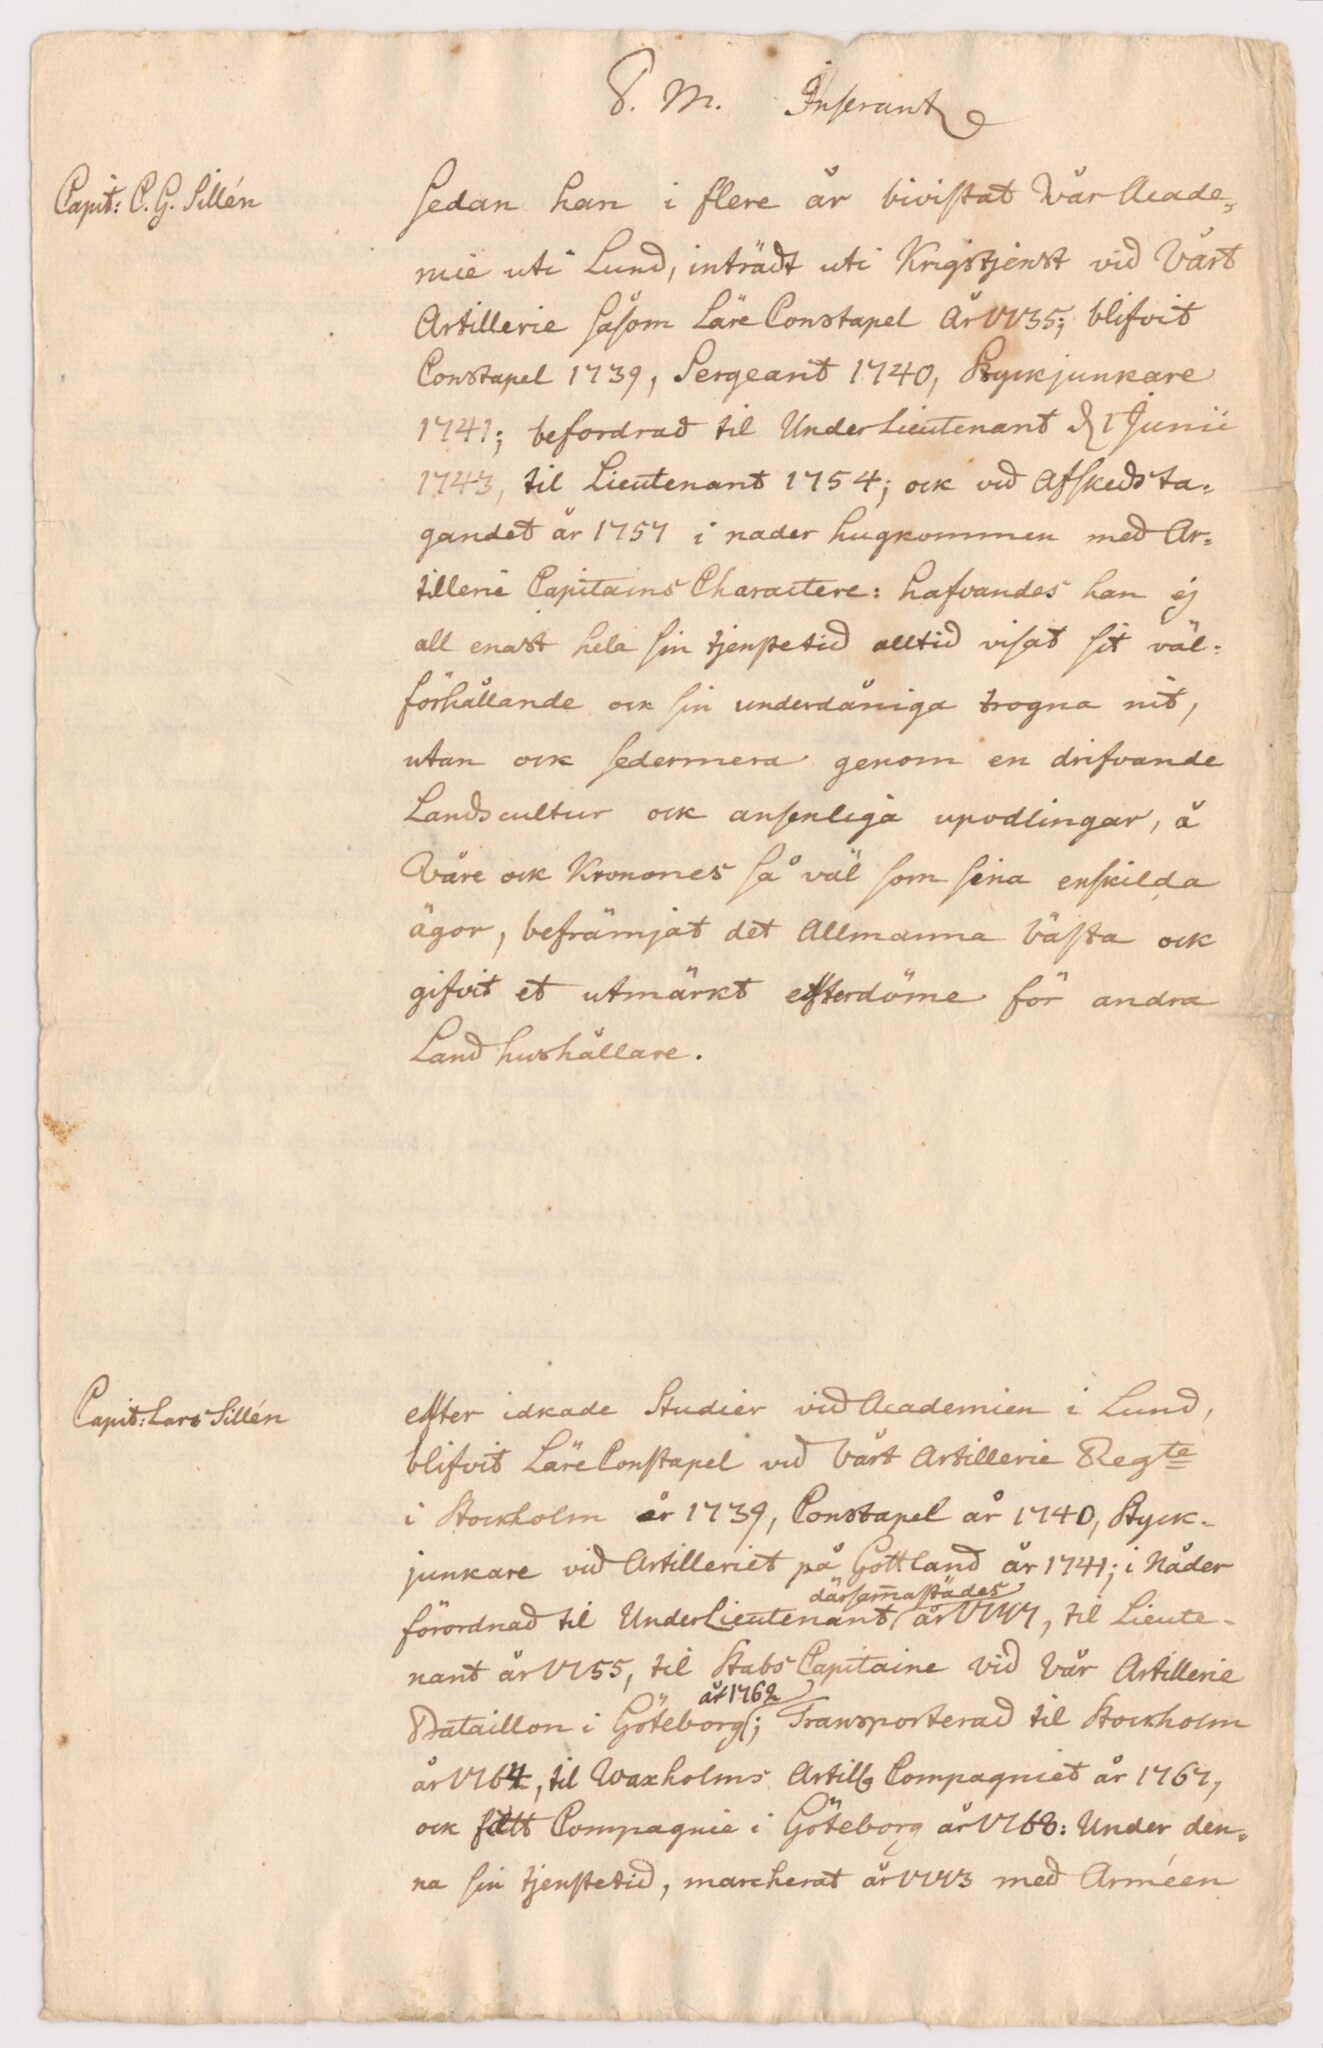 P. M. Inserant
Capit: C. G. Sillén
Sedan han i flere år bivistat Vår Acade=
mie uti Lund, inträdt uti Krigstjenst vid Vårt
Artillerie såsom Läre Constapel År 1735; blifvit
Constapel 1739, Sergeant 1740, Styckjunkare
1741; befordrad til Under Lieutenant d 1 Junii
1743, til Lieutenant 1754; ock vid Afskeds ta=
gandet år 1757 i nåder hugkommen med Ar=
tilleri Capitains Charactere: hafvandes han ej
all enast hela sin tjenstetid alltid visat sit väl=
förhållande ock sin underdåniga trogna nit,
utan ock sedermera genom en drifvande
Landscultur ock ansenliga upodlingar, å
Våre ock Kronones så väl som sina enskilda
ägor, befrämjat det Allmänna bästa ock
gifvit et utmärkt efterdöme för andra
Land hushållare.
Capit: Lars Sillén
efter idkade Studier vid Academien i Lund,
blifvit Läre Constapel vid Vårt Artillerie Regte
i Stockholm år 1739, Constapel år 1740, Styck=
junkare vid Artilleriet på Gottland år 1741; i Nåder
därsammastädes
förordnad til Under Lieutenant år 1747, til Lieute=
nant år 1755, til Stabs Capitaine vid Vår Artillerie
år 1762
Bataillon i Göteborg; Transporterad til Stockholm
år 1764, til Waxholms Artill Compagniet år 1767,
ock fått Compagnie i Göteborg år 1768: Under den=
na sin tjenstetid, marcherat år 1743 med Arméen